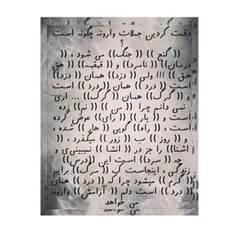 دقت کردین جملات وارونه چگونه است
؟
(( گنج )) (( جنگ )) می شود ، ((
درمان )) (( نامرد )) و (( قهقهه )) (( هق
هق )) !!! ولی (( دزد )) همان (( دزد ))
است (( درد )) همان (( درد ))
است و (( گرگ )) همان (( گرگ )) .. آری
نمی دانم چرا (( من )) (( نم )) زده
است (( یار )) (( رای )) عوض کرده
است ، (( راه )) گویی (( هار )) شده ،
و (( روز )) به (( زور )) میگذرد ، ((
اشنا )) را جز در (( انشا )) نمیبینی و
چه (( سرد )) است این (( درس ))
زندگی ، اینجاست که (( مرگ )) برایم
(( گرم )) میشود چرا که (( درد )) همان
(( درد )) است دلم (( آرامش )) وارونه
می خواهد